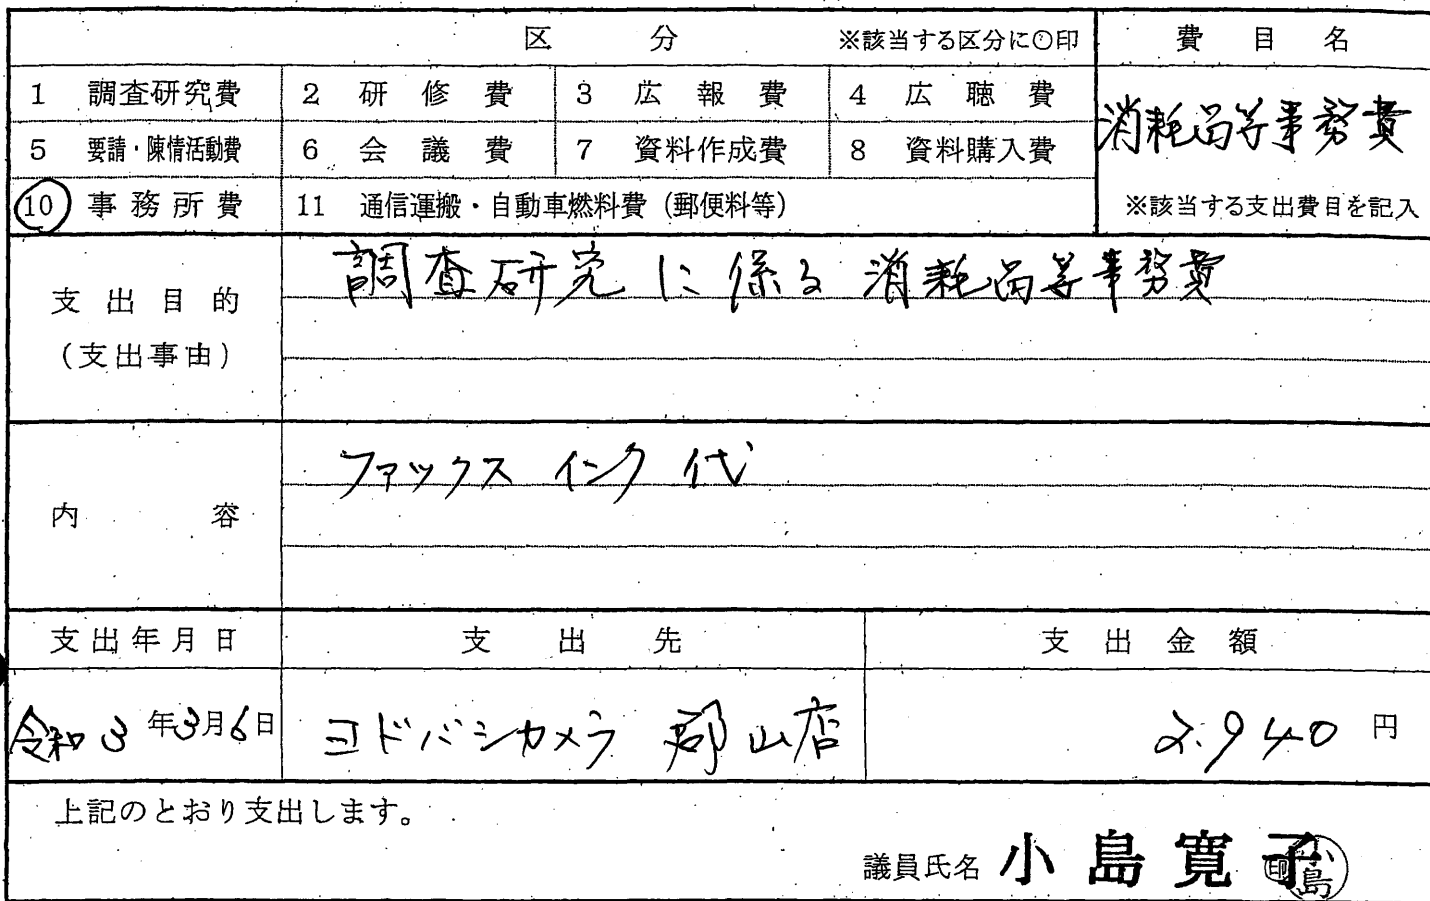 区 分 ※該当する区分に○印 費目名
1 調査研究費 2 研修費 3 広報費 4 広聴費
消耗品等事務費
5 要請・陳情活動費 6 会議費 7 資料作成費 8 資料購入費
10 事務所費 11 通信運搬・自動車燃料費（郵便料等） ※該当する支出費目を記入
調査研究に係る消耗品等事務費
支出目的
（支出事由）
ファックスインク代
内容
支出年月日 支出先 支出金額
令和3年3月6日 ヨドバシカメラ 郡山店 2.940円
上記のとおり支出します。
議員氏名 小島寛子 印 小島